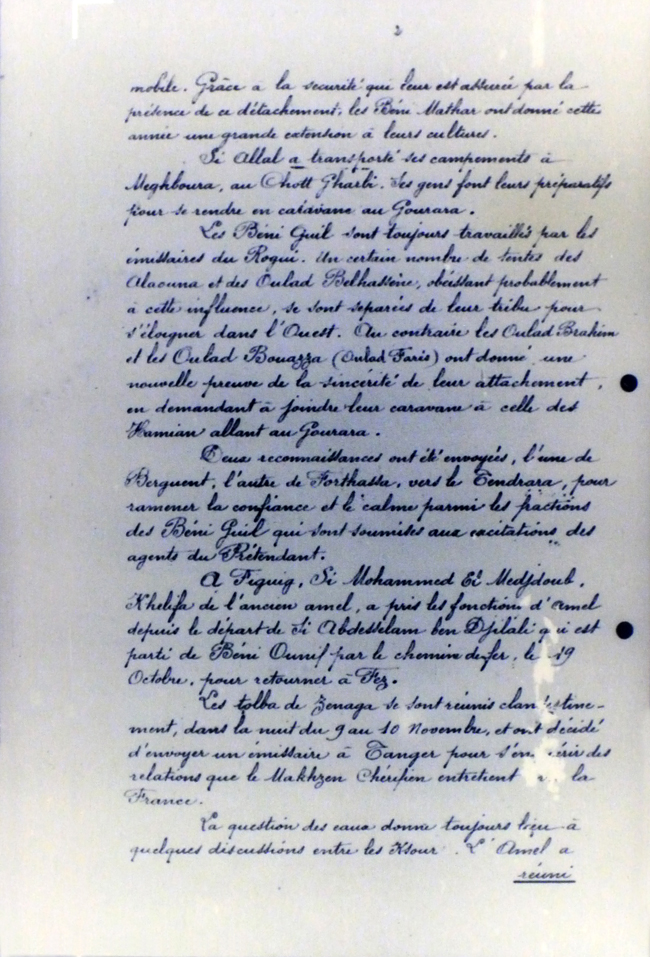 2
mobile. Grâce a la securité qui leur est assurée par la
présence de ce détachement, les Béni Mathar ont donné cette
annie une grande extension à leurs cultures.
Si Allal a transporté ses campements à
Meghboura, au Chott Gharbi. Ses gens font leurs préparatifs
pour se rendre en caravane au Gourara.
Les Béni Guil sont toujours travaillés par les
émissaires du Rogui. Un certain nombre de tentes des
Alaouna et des Oulad Belhassène, obéissant probablement
à cette influence, se sont separées de leur tribu pour
s'éloigner dans l'Ouest. Au contraire les Oulad Brahim
et les Oulad Bouazza (Oulad Faris) ont donné une
nouvelle preuve de la sincérité de leur attachement,
en demandant à joindre leur caravane à celle des
Hamian allant au Gourara.
Deux reconnaissances ont été envoyées, l'une de
Berguent, l'autre de Forthassa, vers le Tendrara, pour
ramener la confiance et le calme parmi les fractions
des Béni Guil qui sont soumises aux excitations des
agents du Prétendant.
A Figuig, Si Mohammed El Medjdoub,
Khelifa de l'ancien amel, a pris les fonctions d'amel
depuis le départ de Si Abdesselam ben Djilali qui est
parti de Béni Ounif par le chemin de fer, le 19
Octobre, pour retourner à Fez.
Les tolba de Zenaga se sont réunis clandestine-
ment, dans la nuit du 9 au 10 Novembre, et ont décidé
d'envoyer un émissaire à Tanger pour des
relations que le Makhzen Chérifien entretient la
France.
La question des eaux donne toujours lieu à
quelques discussions entre les Ksour. L'Amel a
réuni